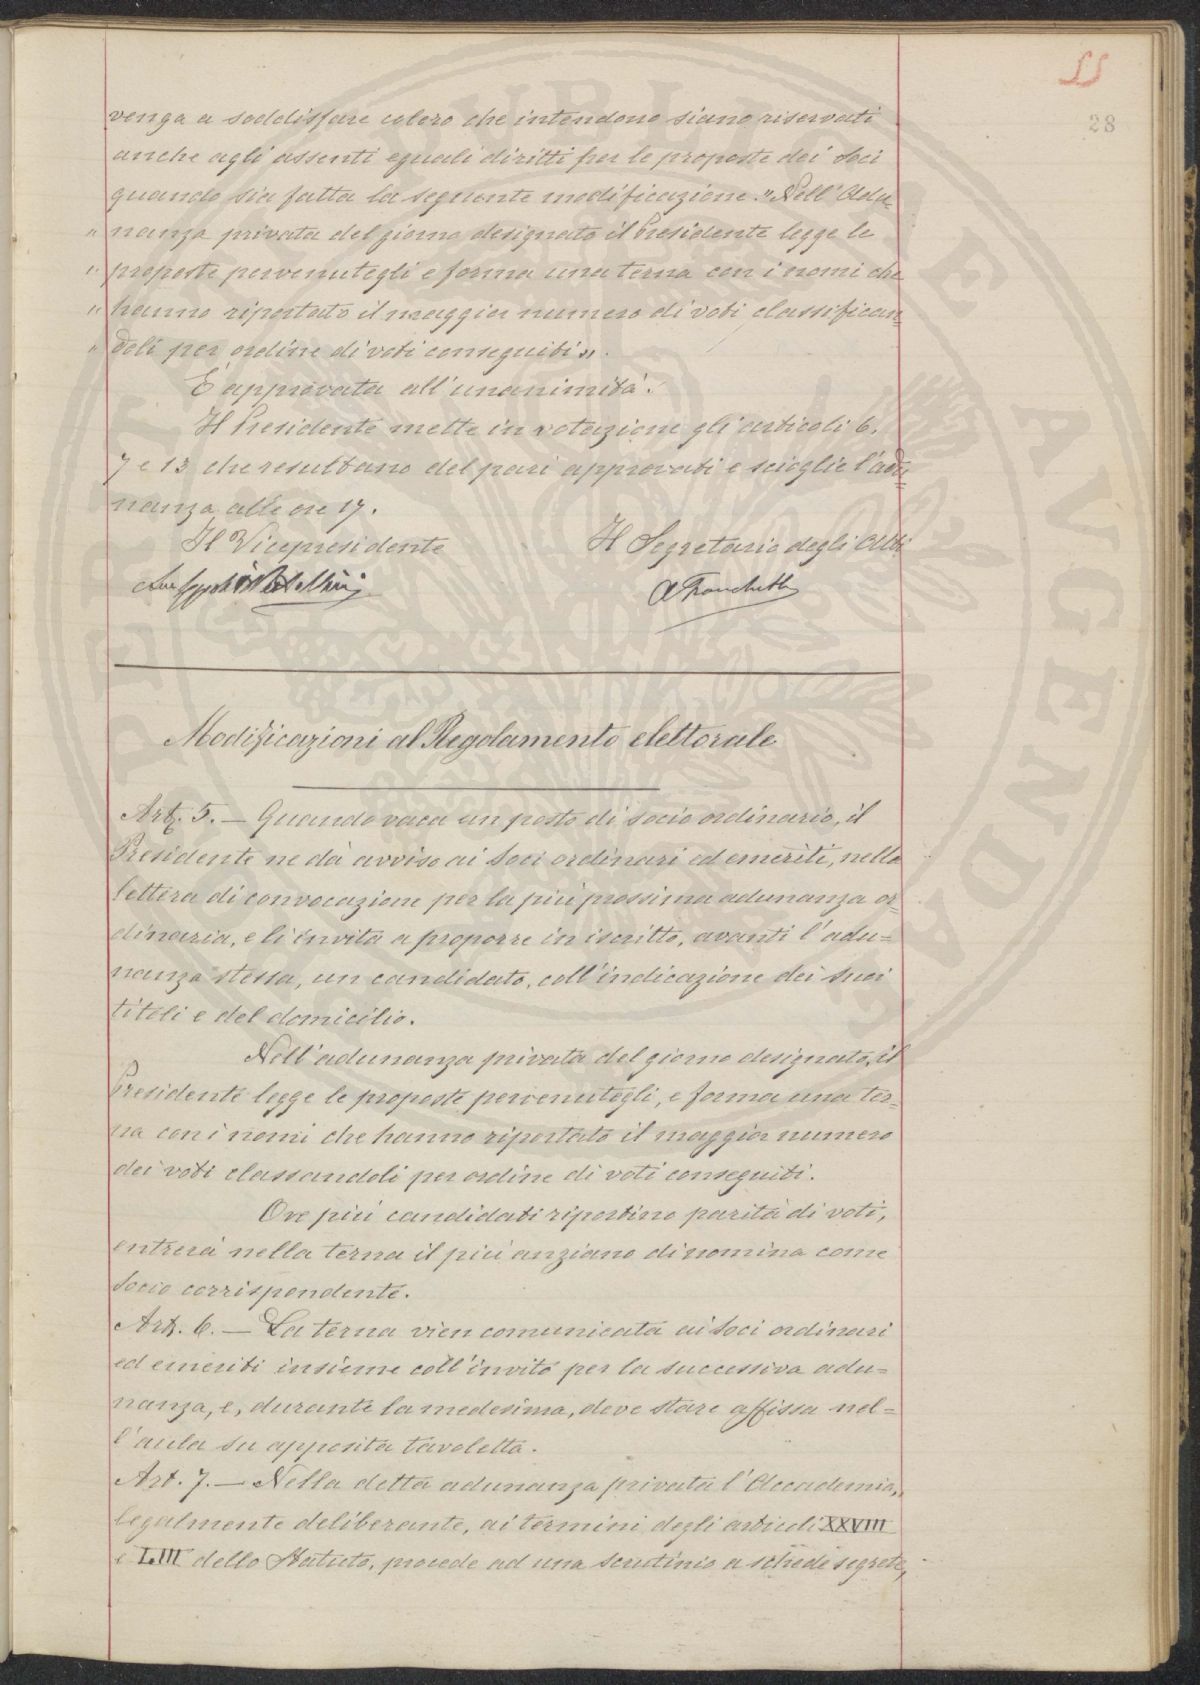 55
28
venga a soddisfare coloro che intendono siano riservati
anche agli assenti eguali diritti per le proposte dei Soci
quando sia fatta la seguente modificazione. "Nell'Adu-
" nanza privata del giorno designato il Presidente legge le
" proposte pervenutegli e forma una terna con i nomi che
" hanno riportato il maggior numero di voti, classifican-
" doli per ordine di voti conseguiti".
È approvata all'unanimità.
Il Presidente mette in votazione gli articoli 6.
7 e 13 che resultano del pari approvati e scioglie l'adu=
nanza alle ore 17.
Il Vicepresidente Il Segretario degli Atti
A Franchetti
Modificazioni al Regolamento elettorale
Art. 5. — Quando vaca un posto di socio ordinario, il
Presidente ne dà avviso ai Soci ordinari ed emeriti, nella
lettera di convocazione per la più prossima adunanza or=
dinaria, e li invita a proporre in iscritto, avanti l'adu=
nanza stessa, un candidato, coll'indicazione dei suoi
titoli e del domicilio.
Nell'adunanza privata del giorno designato, il
Presidente legge le proposte pervenutegli, e forma una ter=
na con i nomi che hanno riportato il maggior numero
dei voti classandoli per ordine di voti conseguiti.
Ove più candidati riportino parità di voti,
entrerà nella terna il più anziano di nomina come
Socio corrispondente.
Art. 6. — La terna vien comunicata ai Soci ordinari
ed emeriti insieme coll'invito per la successiva adu=
nanza, e, durante la medesima, deve stare affissa nel=
l'aula su apposita tavoletta.
Art. 7. — Nella detta adunanza privata l'Accademia,
legalmente deliberante, ai termini degli articoli XXVIII
e LIII dello Statuto, procede ad una scrutinio a schede segrete,